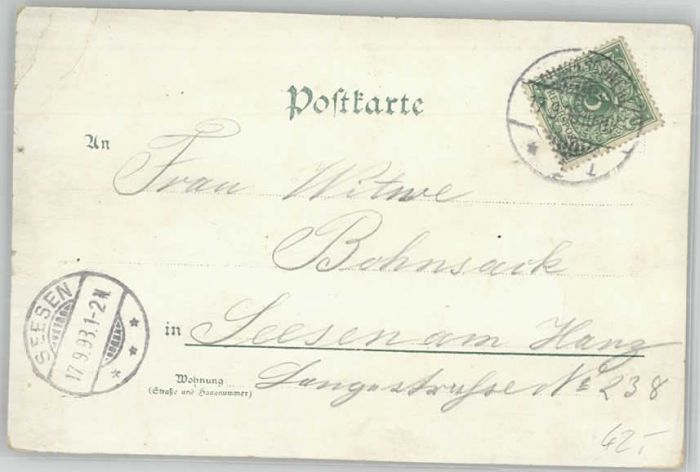 Postkarte
An
Frau Witwe
Bohnsack
in Seesen am Harz
Wohnung
(Straße und Hausnummer)
Langestraße No 238
SEESEN
17.9.98.1-2N
42.-